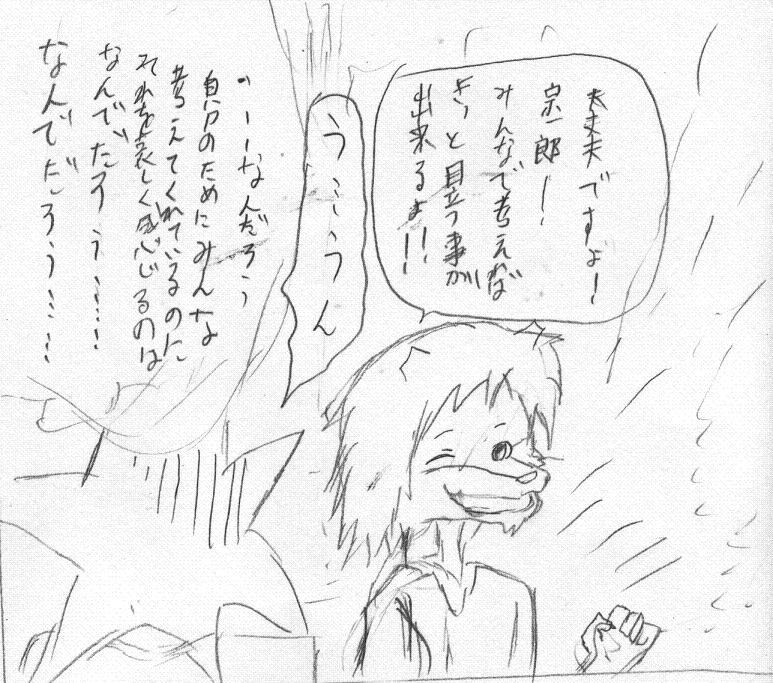 大丈夫ですよ！
宗一郎！
みんなで考えれば
きっと目立つ事が
出来るよ！！
う…うん
…なんだろう
自分のためにみんな
考えてくれているのに
それを哀しく感じるのは
なんでだろう…！
なんでだろう……